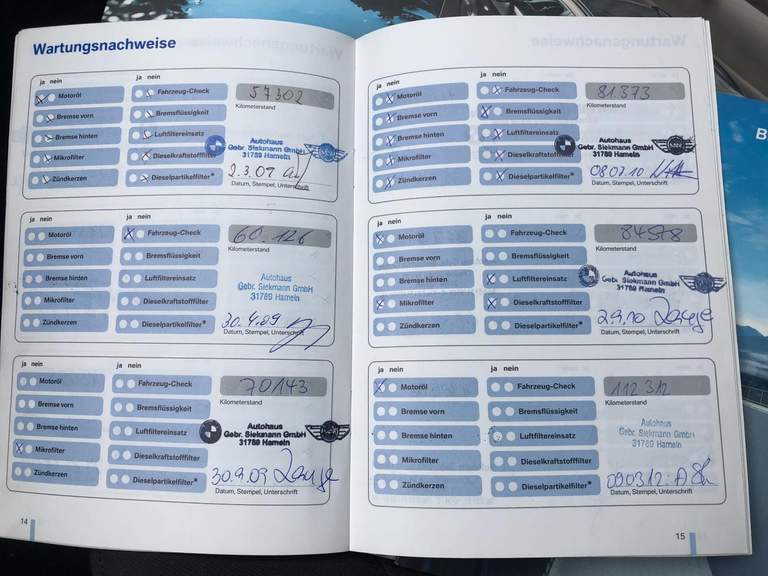 Wartungsnachweise
ja nein
ja nein
Motoröl
Fahrzeug-Check
57302
Kilometerstand
Bremse vorn
Bremsflüssigkeit
Bremse hinten
Luftfiltereinsatz
Autohaus
Gebr. Siekmann GmbH
31789 Hameln
Mikrofilter
Dieselkraftstofffilter
2.3.09
Zündkerzen
Dieselpartikelfilter*
Datum, Stempel, Unterschrift
ja nein
ja nein
Motoröl
Fahrzeug-Check
60.126
Kilometerstand
Bremse vorn
Bremsflüssigkeit
Bremse hinten
Luftfiltereinsatz
Autohaus
Gebr. Siekmann GmbH
31789 Hameln
Mikrofilter
Dieselkraftstofffilter
30.4.09
Zündkerzen
Dieselpartikelfilter*
Datum, Stempel, Unterschrift
ja nein
ja nein
Motoröl
Fahrzeug-Check
70143
Kilometerstand
Bremse vorn
Bremsflüssigkeit
Bremse hinten
Luftfiltereinsatz
Autohaus
Gebr. Siekmann GmbH
31789 Hameln
Mikrofilter
Dieselkraftstofffilter
30.9.09
Zündkerzen
Dieselpartikelfilter*
Datum, Stempel, Unterschrift
14
ja nein
ja nein
Motoröl
Fahrzeug-Check
81.373
Kilometerstand
Bremse vorn
Bremsflüssigkeit
Bremse hinten
Luftfiltereinsatz
Autohaus
Gebr. Siekmann GmbH
31789 Hameln
Mikrofilter
Dieselkraftstofffilter
08.07.10
Zündkerzen
Dieselpartikelfilter*
Datum, Stempel, Unterschrift
ja nein
ja nein
Motoröl
Fahrzeug-Check
84578
Kilometerstand
Bremse vorn
Bremsflüssigkeit
Bremse hinten
Luftfiltereinsatz
Autohaus
Gebr. Siekmann GmbH
31789 Hameln
Mikrofilter
Dieselkraftstofffilter
2.9.10
Zündkerzen
Dieselpartikelfilter*
Datum, Stempel, Unterschrift
ja nein
ja nein
Motoröl
Fahrzeug-Check
112312
Kilometerstand
Bremse vorn
Bremsflüssigkeit
Bremse hinten
Luftfiltereinsatz
Autohaus
Gebr. Siekmann GmbH
31789 Hameln
Mikrofilter
Dieselkraftstofffilter
09.03.12
Zündkerzen
Dieselpartikelfilter*
Datum, Stempel, Unterschrift
15
B